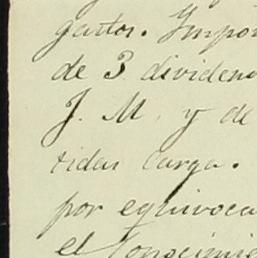 gastos. Impor
de 3 dividen
J. M, y de
tidas carga.
por equivoca
el Conocimie